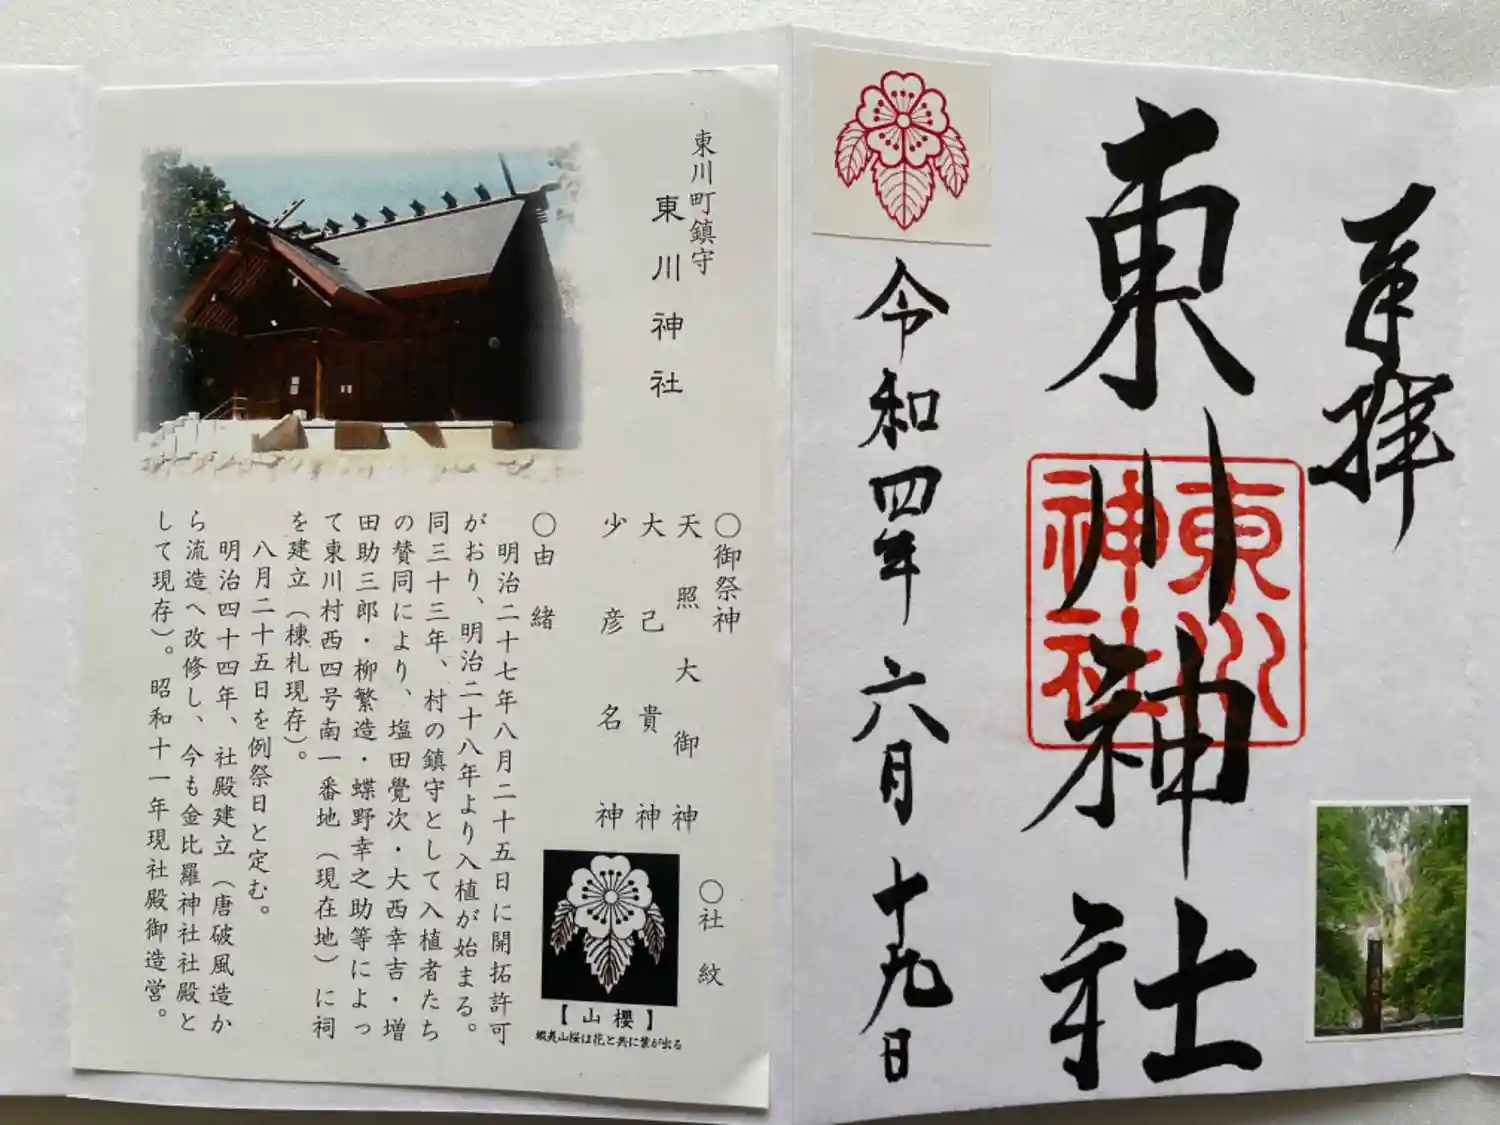 奉拝
東川神社
東川
神社
令和四年 六月 十九日
東川町鎮守
東川神社
〇御祭神
天照大御神
大己貴神
少彦名神
〇社紋
【山櫻】
蝦夷山桜は花と共に葉が出る
〇由緒
明治二十七年八月二十五日に開拓許可
がおり、明治二十八年より入植が始まる。
同三十三年、村の鎮守として入植者たち
の賛同により、塩田覺次・大西幸吉・増
田助三郎・柳繁造・蝶野幸之助等によっ
て東川村西四号南一番地（現在地）に祠
を建立（棟札現存）。
八月二十五日を例祭日と定む。
明治四十四年、社殿建立（唐破風造か
ら流造へ改修し、今も金比羅神社社殿と
して現存）。昭和十一年現社殿御造営。